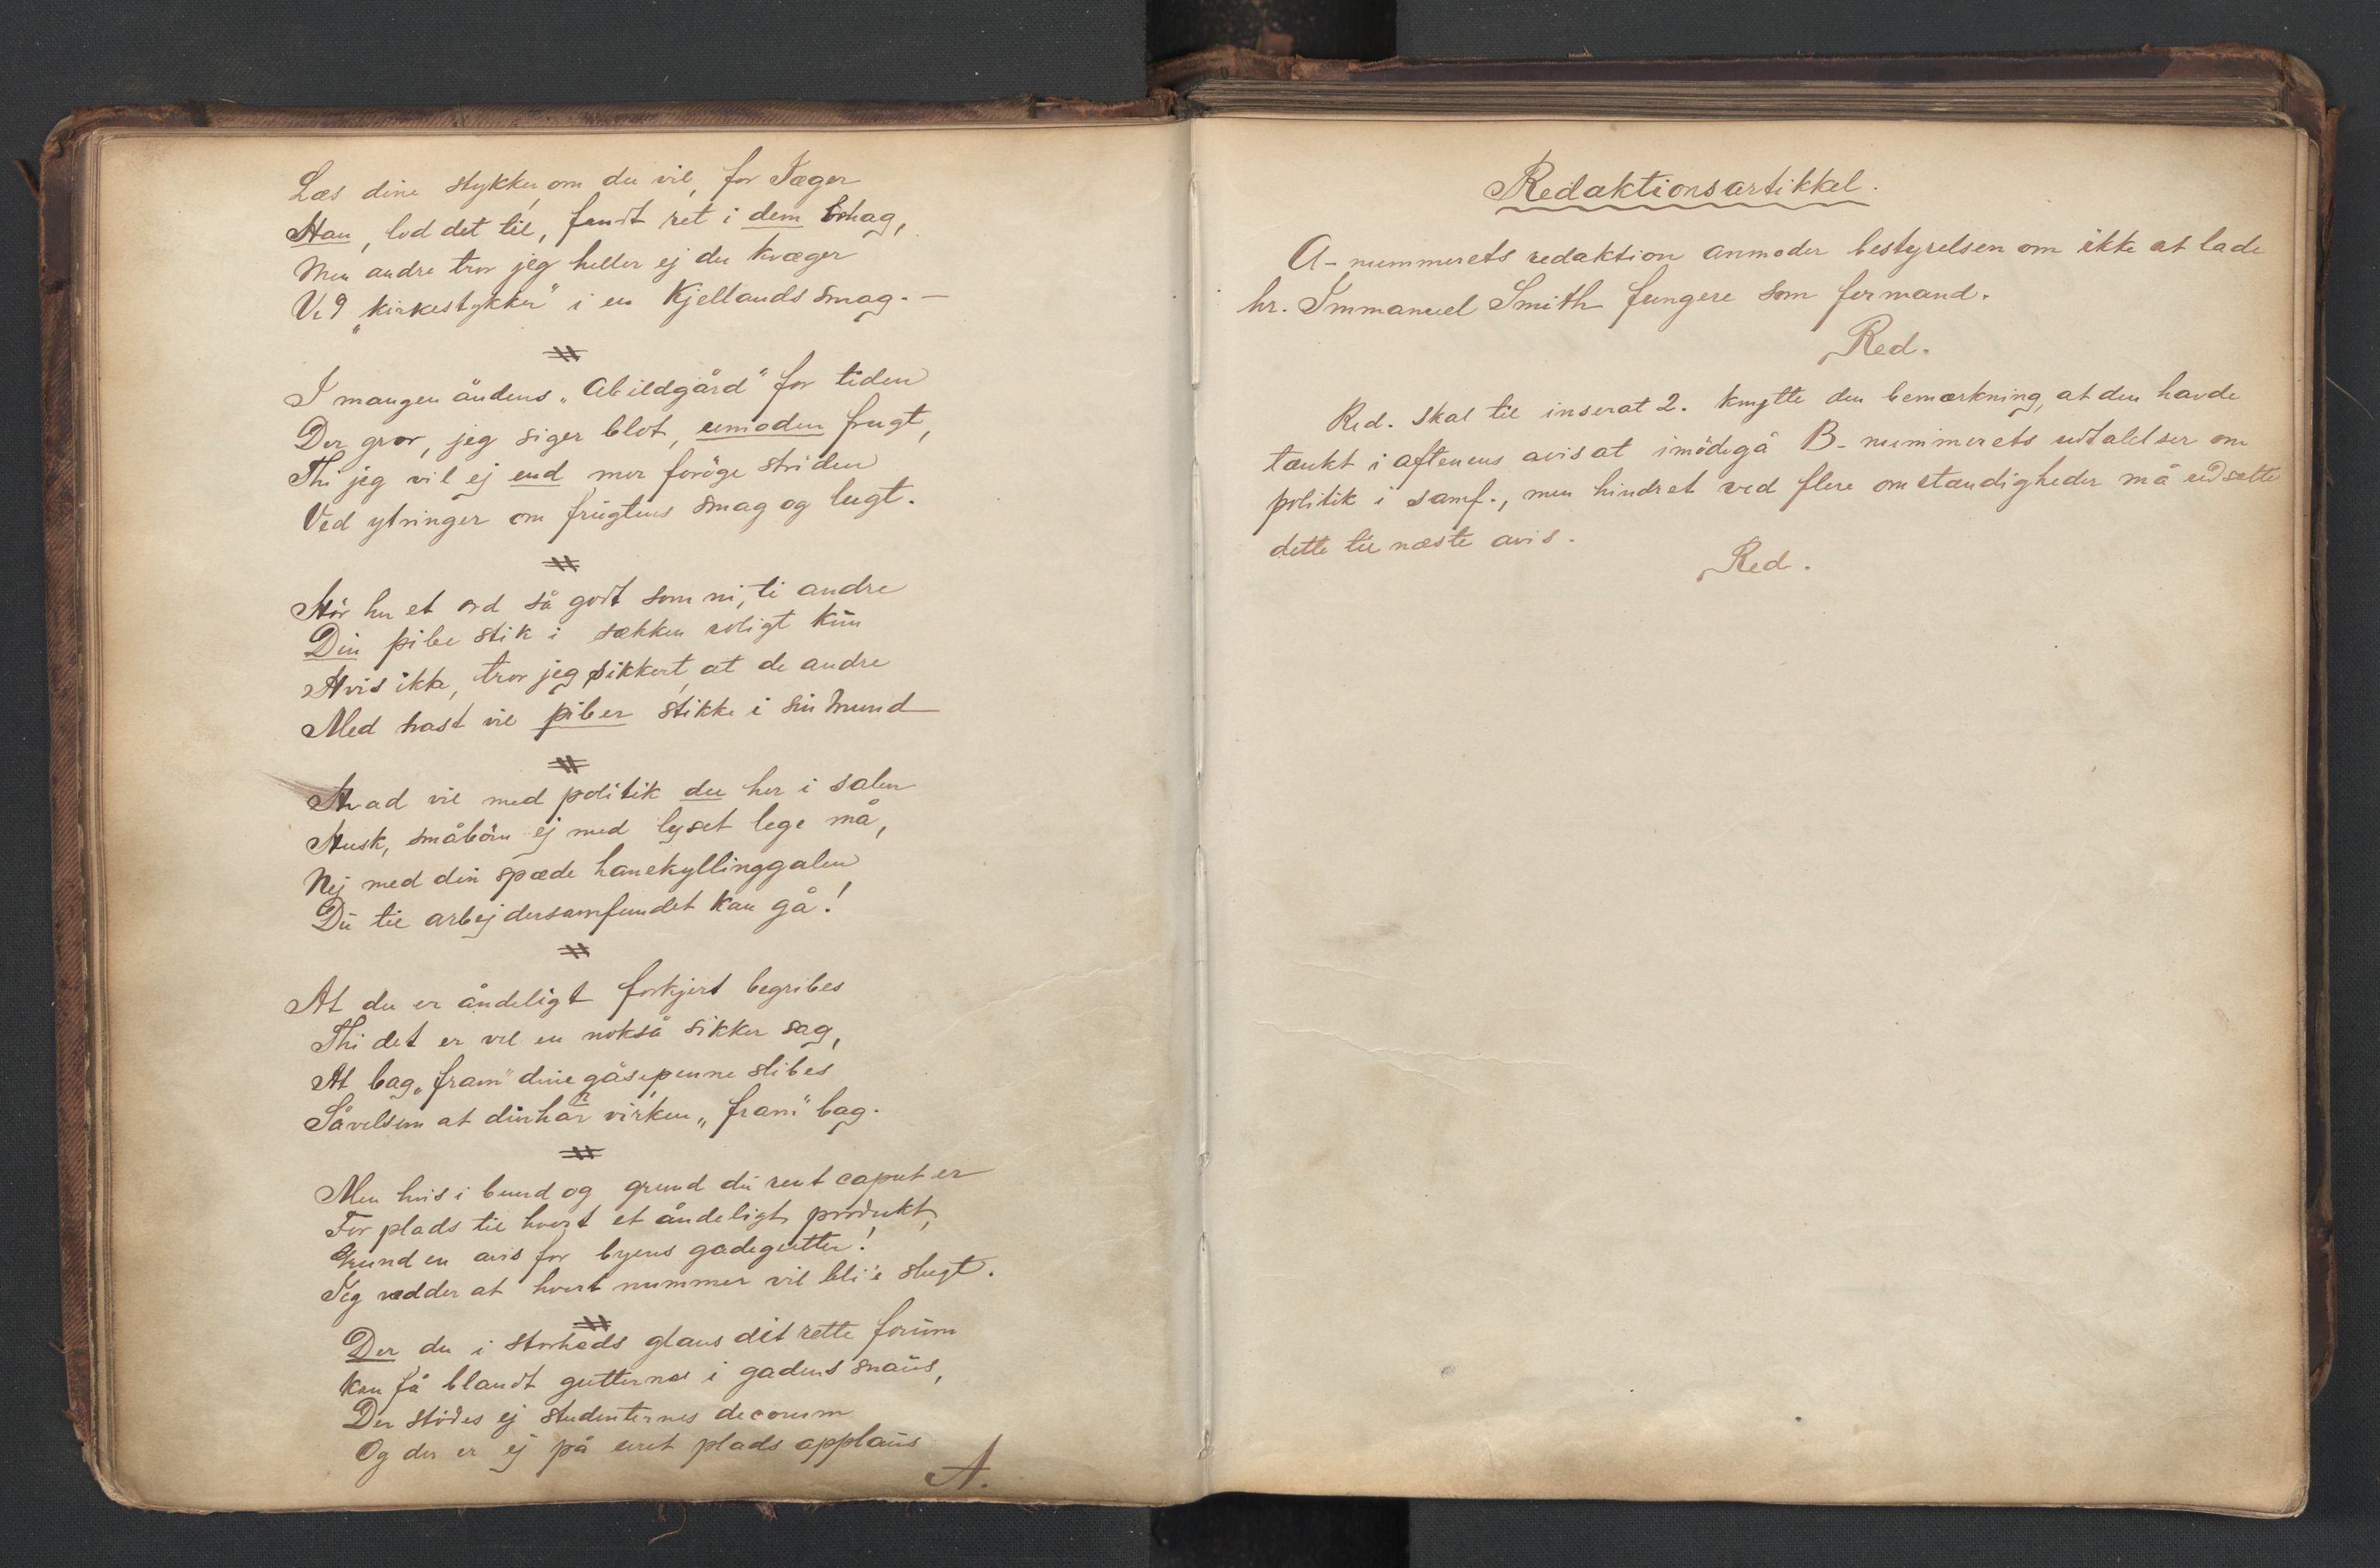 Læs dine stykker, om du vil, for Jæger
Han, lod det til, fandt ret i dem behag,
Men andre tror jeg heller ej du kvæger
Ved „kirkestykker" i en Kjellands smag. —
I mangen åndens „Abildgård" for tiden
Der gror, jeg siger blot, umoden frugt,
Thi jeg vil ej end mer foröge striden
Ved ytringer om frugtens smag og lugt.
Hör her et ord så godt som ni, ti andre
Din pibe stik i sækken roligt kun
Hvis ikke, tror jeg sikkert, at de andre
Med hast vil piber stikke i sin mund
Hvad vil med politik du her i salen
Husk, småbörn ej med lyset lege må,
Nej med din spæde hanekyllinggalen
Du til arbejdersamfundet kan gå!
At du er åndeligt forkjert begribes
Thi det er vel en nokså sikker sag,
At bag „fram" dine gåsepenne slibes
Såvelsom at din har virken „fram" bag.
Men hvis i bund og grund du rent caput er
For plads til hvert et åndeligt produkt,
Grund en avis for byens gadegutter!
Jeg vædder at hvert nummer vil bli'e slugt.
Der du i storheds glans dit rette forum
Kan få blandt gutterne i gadens snaus,
Der stödes ej studenternes decorum
Og der er ej på uret plads applaus
A.
Redaktionsartikkel.
A-nummerets redaktion anmoder bestyrelsen om ikke at lade
hr. Immanuel Smith fungere som formand.
Red.
Red. skal til inserat 2. knytte den bemærkning, at den havde
tænkt i aftenens avis at imödegå B-nummerets udtalelser om
politik i samf., men hindret ved flere omstændigheder må udsætte
dette til næste avis.
Red.